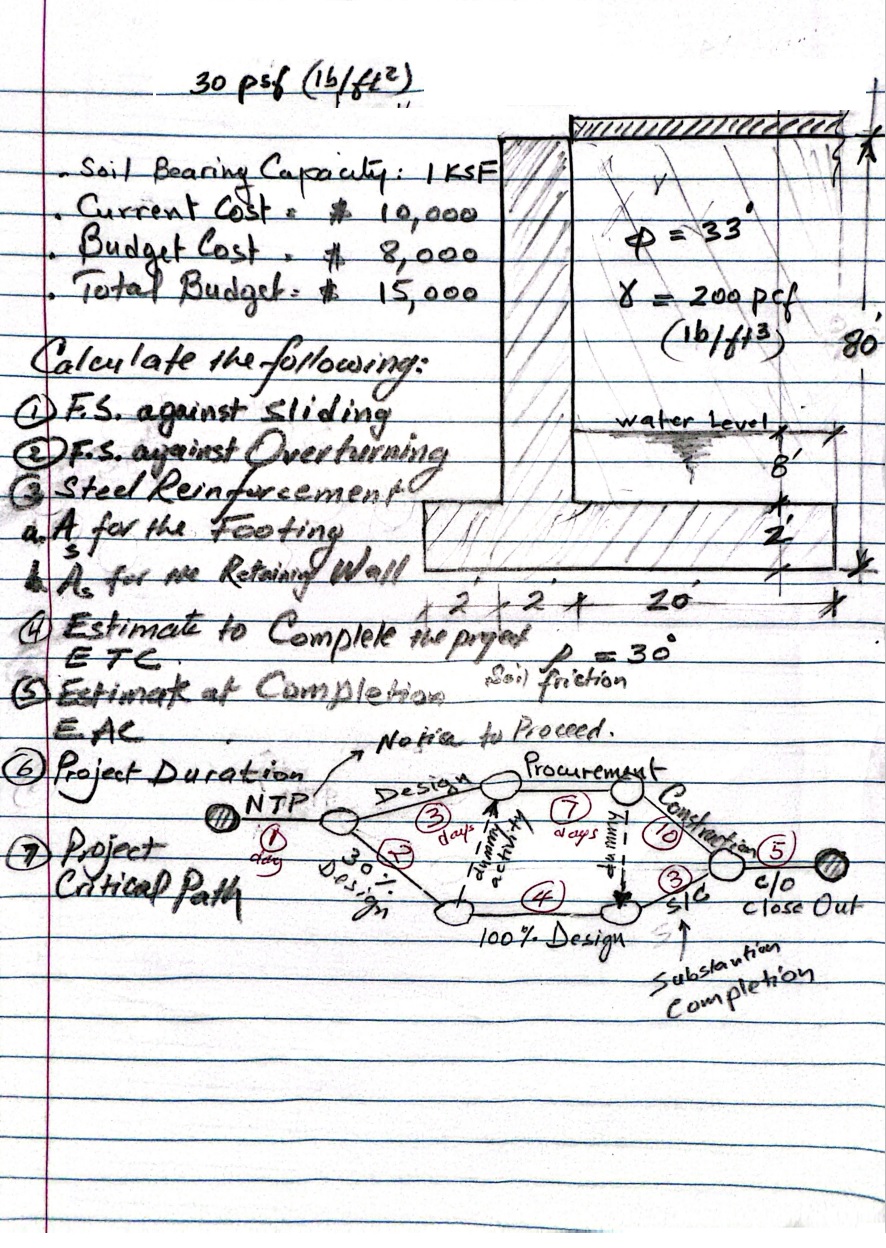 30 psf (lb/ft²)
. Soil Bearing Capacity: 1 KSF
. Current Cost = $ 10,000
. Budget Cost = $ 8,000
. Total Budget = $ 15,000
γ
φ = 33°
γ = 200 pcf
(lb/ft³)
80'
Calculate the following:
① F.S. against Sliding
② F.S. against Overturning
③ Steel Reinforcement
a. As for the Footing
b. As for the Retaining Wall
water Level
8'
2'
2' 2' 20'
④ Estimate to Complete the project
ETC.
ρ = 30°
Soil friction
⑤ Estimate at Completion
EAC
Notice to Proceed.
⑥ Project Duration
NTP
① day
Design
③ days
Procurement
⑦ days
Construction
⑩
30% Design
dummy activity
dummy
④
100% Design
③
S/C
⑤
C/O
Close Out
⑦ Project
Critical Path
Substantion
Completion